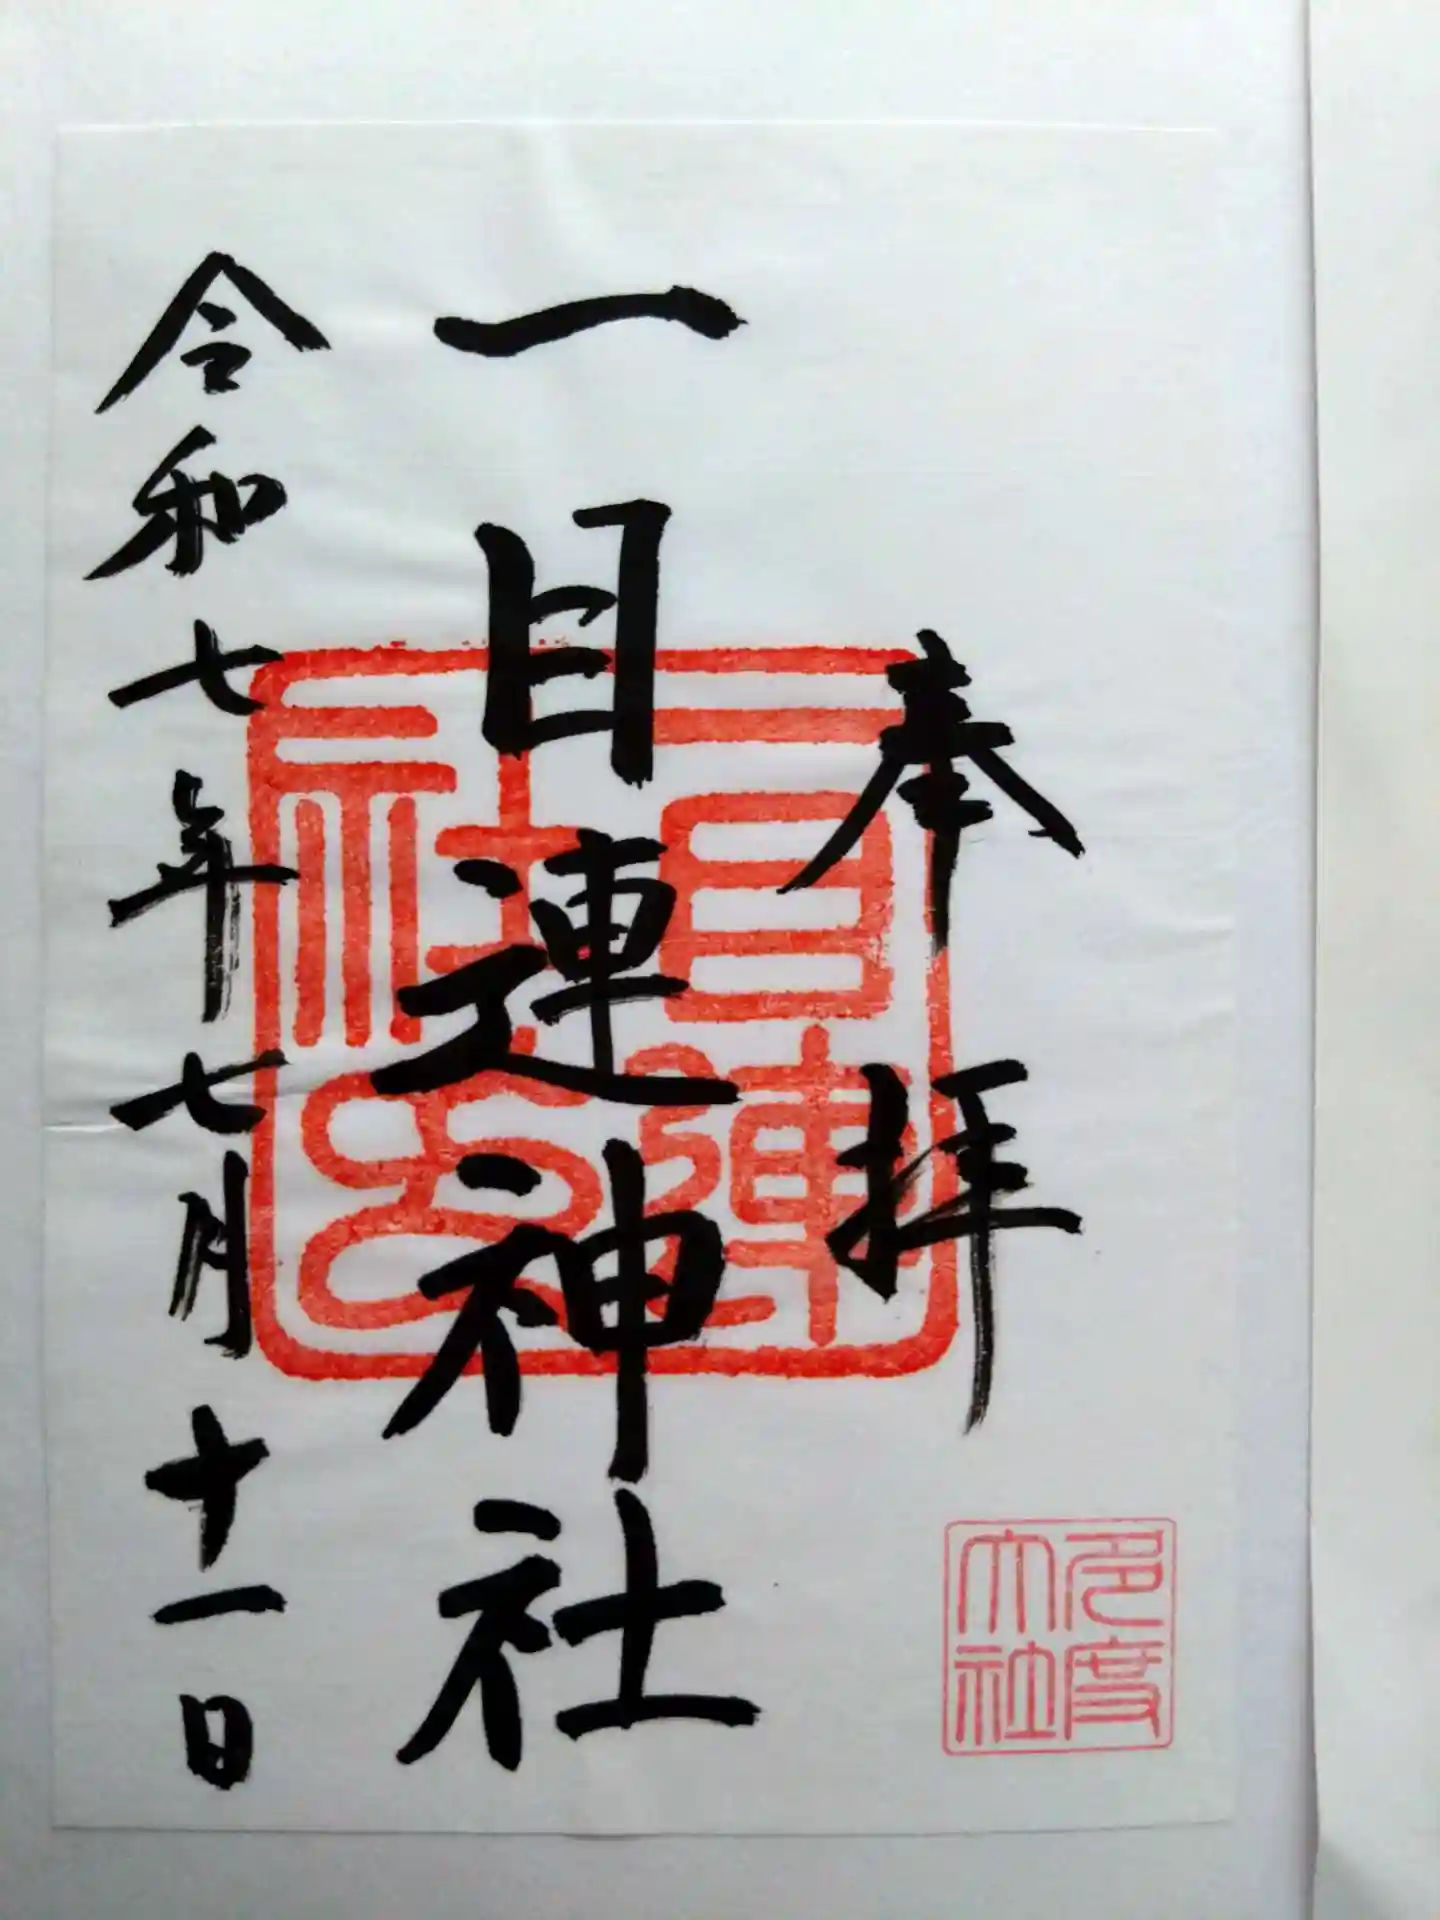 奉拝
一目連神社
令和七年七月十一日
一目連社印
多度大社